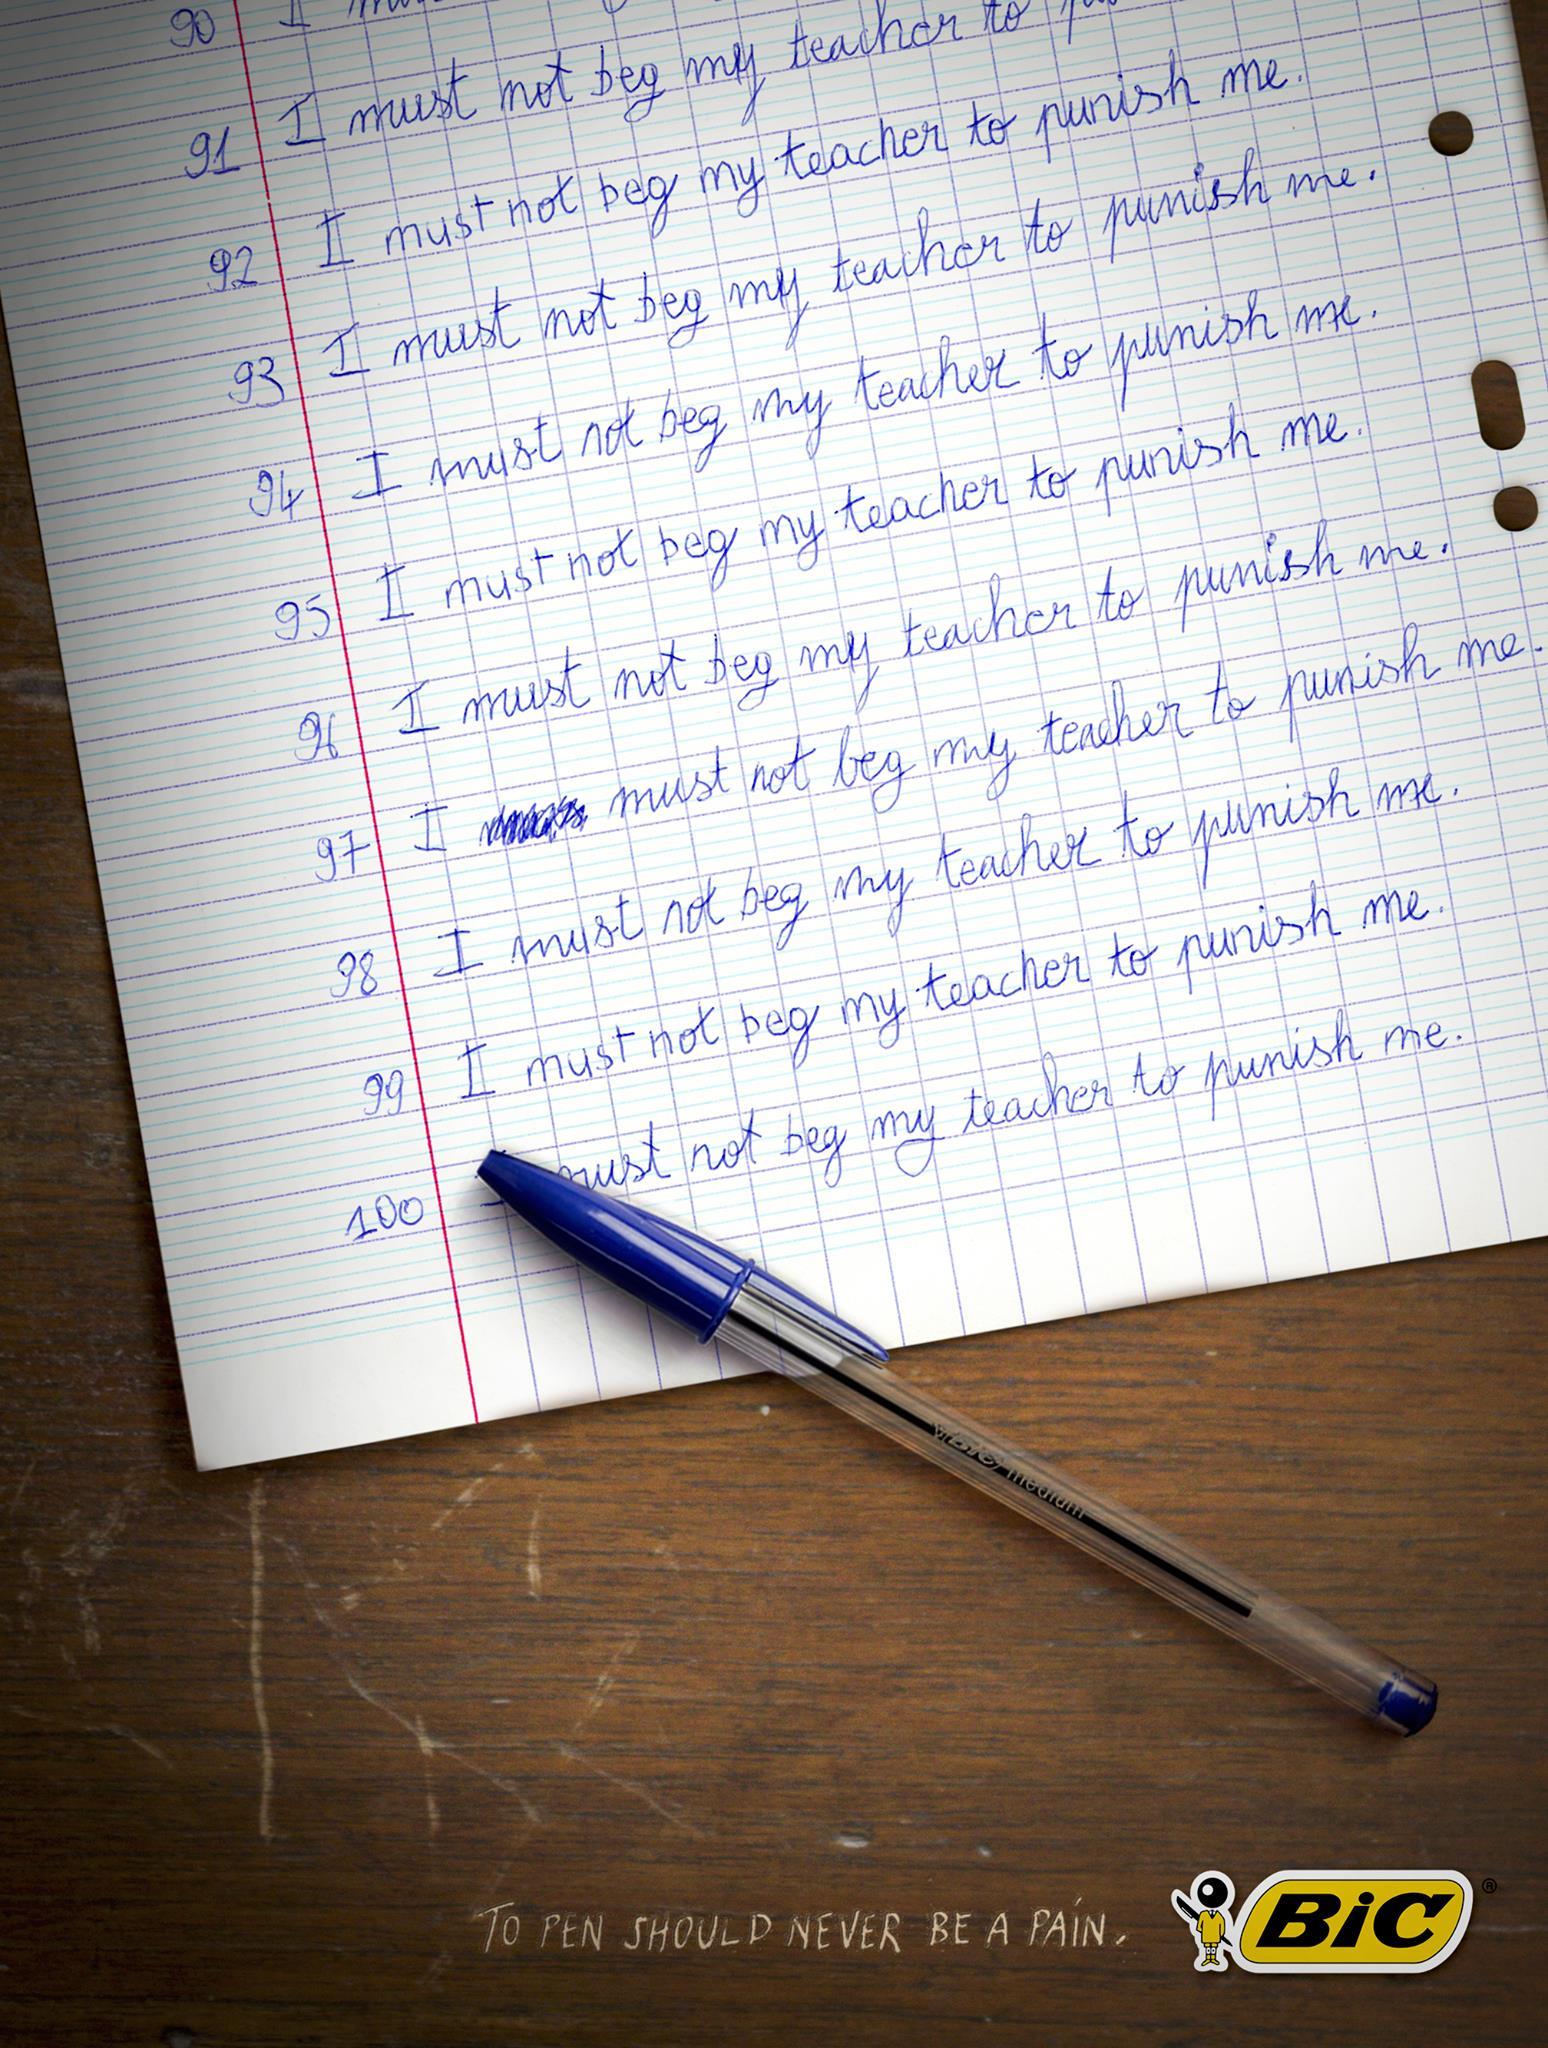 90 I
91 I must not beg my teacher to
92 I must not beg my teacher to punish me.
93 I must not beg my teacher to punish me.
94 I must not beg my teacher to punish me.
95 I must not beg my teacher to punish me.
96 I must not beg my teacher to punish me.
97 I must not beg my teacher to punish me.
98 I must not beg my teacher to punish me.
99 I must not beg my teacher to punish me.
100 must not beg my teacher to punish me.
BIC medium
TO PEN SHOULD NEVER BE A PAIN.
BiC®